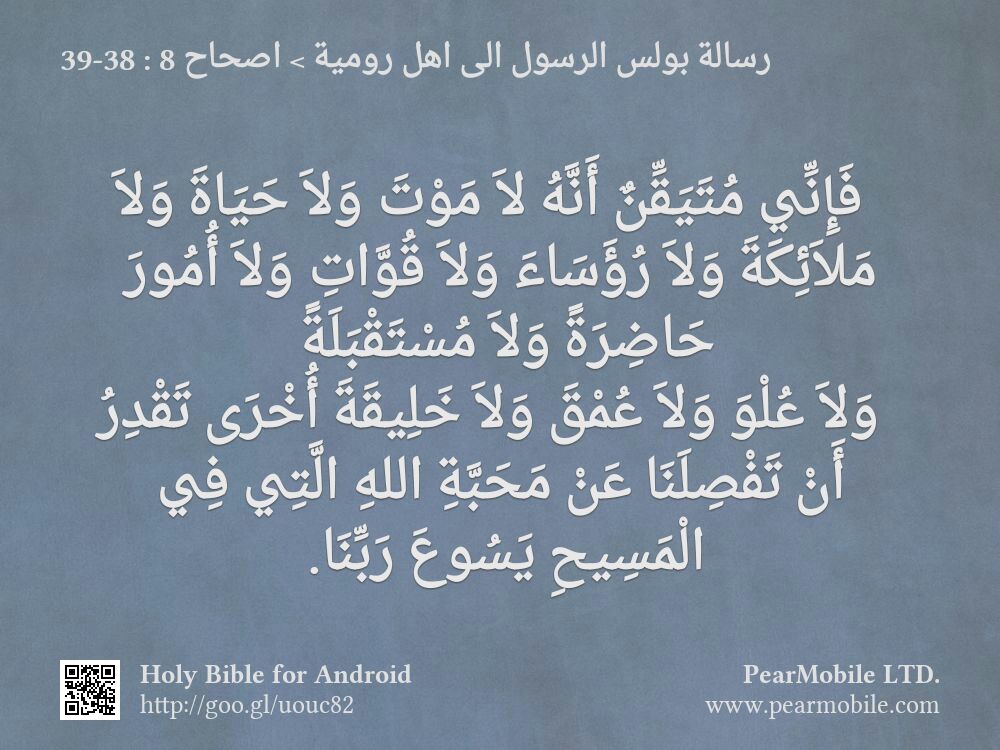 رسالة بولس الرسول الى اهل رومية > اصحاح 8 : 38-39
فَإِنِّي مُتَيَقِّنٌ أَنَّهُ لاَ مَوْتَ وَلاَ حَيَاةَ وَلاَ
مَلاَئِكَةَ وَلاَ رُؤَسَاءَ وَلاَ قُوَّاتِ وَلاَ أُمُورَ
حَاضِرَةً وَلاَ مُسْتَقْبَلَةً
وَلاَ عُلْوَ وَلاَ عُمْقَ وَلاَ خَلِيقَةَ أُخْرَى تَقْدِرُ
أَنْ تَفْصِلَنَا عَنْ مَحَبَّةِ اللهِ الَّتِي فِي
الْمَسِيحِ يَسُوعَ رَبِّنَا.
Holy Bible for Android
http://goo.gl/uouc82
PearMobile LTD.
www.pearmobile.com